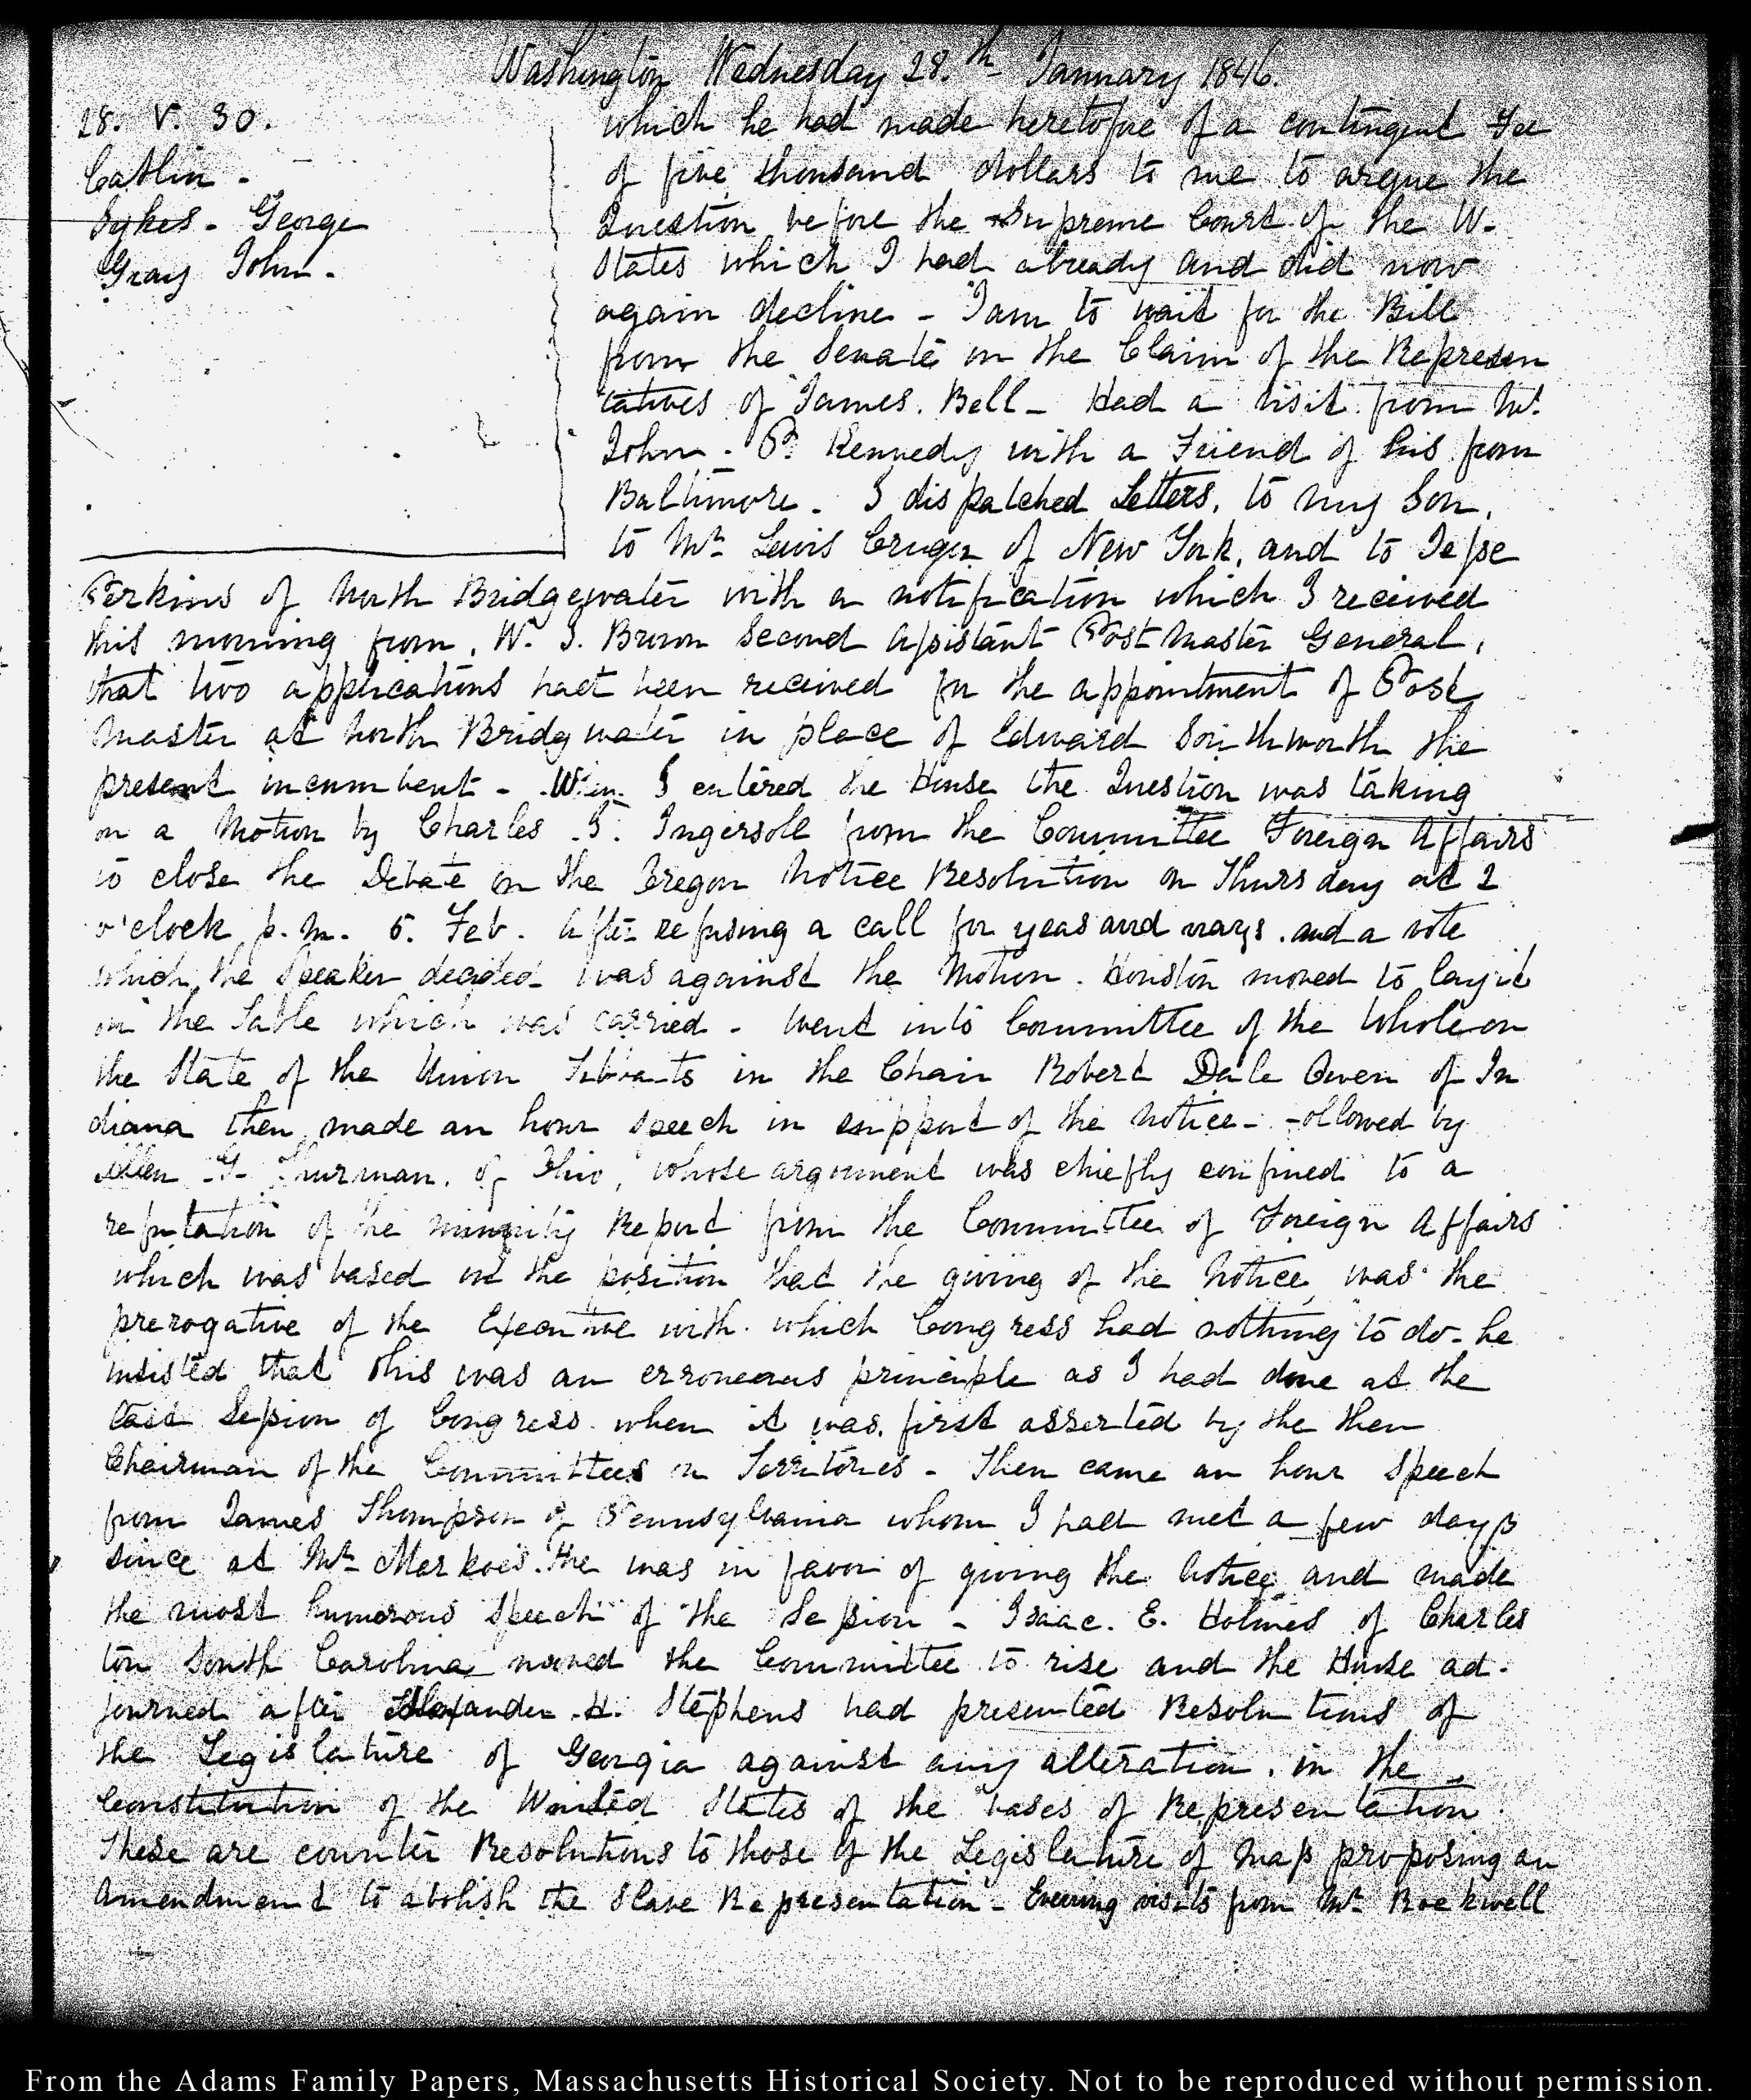 Washington Wednesday 28.th January 1846.
28. V. 30.
Catlin.
Sykes. George
Gray John.
which he had made heretofore of a contingent Fee
of five thousand dollars to me to argue the
Question before the Supreme Court of the U.
States which I had already and did now
again decline - I am to wait for the Bill
from the Senate on the Claim of the Represen
tatives of James. Bell - Had a visit from Mr.
John. P. Kennedy with a Friend of his from
Baltimore. I dispatched Letters, to my Son,
to Mr. Lewis Cruger of New York, and to Jesse
Perkins of North Bridgewater with a notification which I received
this morning from, W. J. Brown Second Assistant Post Master General,
that two applications had been received for the appointment of Post
Master at North Bridgwater in place of Edward Southworth the
present incumbent - When I entered the House the Question was taking
on a Motion by Charles J. Ingersoll from the Committee Foreign Affairs
to close the Debate on the Oregon Notice Resolution on Thursday at 2
o'clock p. m. 5. Feb. After refusing a call for yeas and nays. and a vote
which the Speaker decided was against the Motion. Houston moved to lay it
on the Table which was carried - Went into Committee of the Whole on
the State of the Union Tibbatts in the Chair Robert Dale Owen of In
diana then made an hour speech in support of the Notice - ollowed by
Allen G. Thurman. of Ohio, whose argument was chiefly confined to a
refutation of the minority Report from the Committee of Foreign Affairs
which was based on the position that the giving of the Notice, was the
prerogative of the Executive with which Congress had nothing to do - he
insisted that this was an erroneous principle as I had done at the
last Session of Congress when it was first asserted by the then
Chairman of the Committees on Territories - Then came an hour speech
from James Thompson of Pennsylvania whom I had met a few days
since at Mr. Markoe's. He was in favor of giving the Notice, and made
the most humorous speech of the Session - Isaac. E. Holmes of Charles
ton South Carolina moved the Committee to rise and the House ad-
journed after Alexander H. Stephens had presented Resolutions of
the Legislature of Georgia against any alteration, in the
Constitution of the United States of the bases of Representation.
These are counter Resolutions to those of the Legislature of Mass proposing an
Amendment to abolish the Slave Representation - Evening visits from Mr. Rockwell
From the Adams Family Papers, Massachusetts Historical Society. Not to be reproduced without permission.